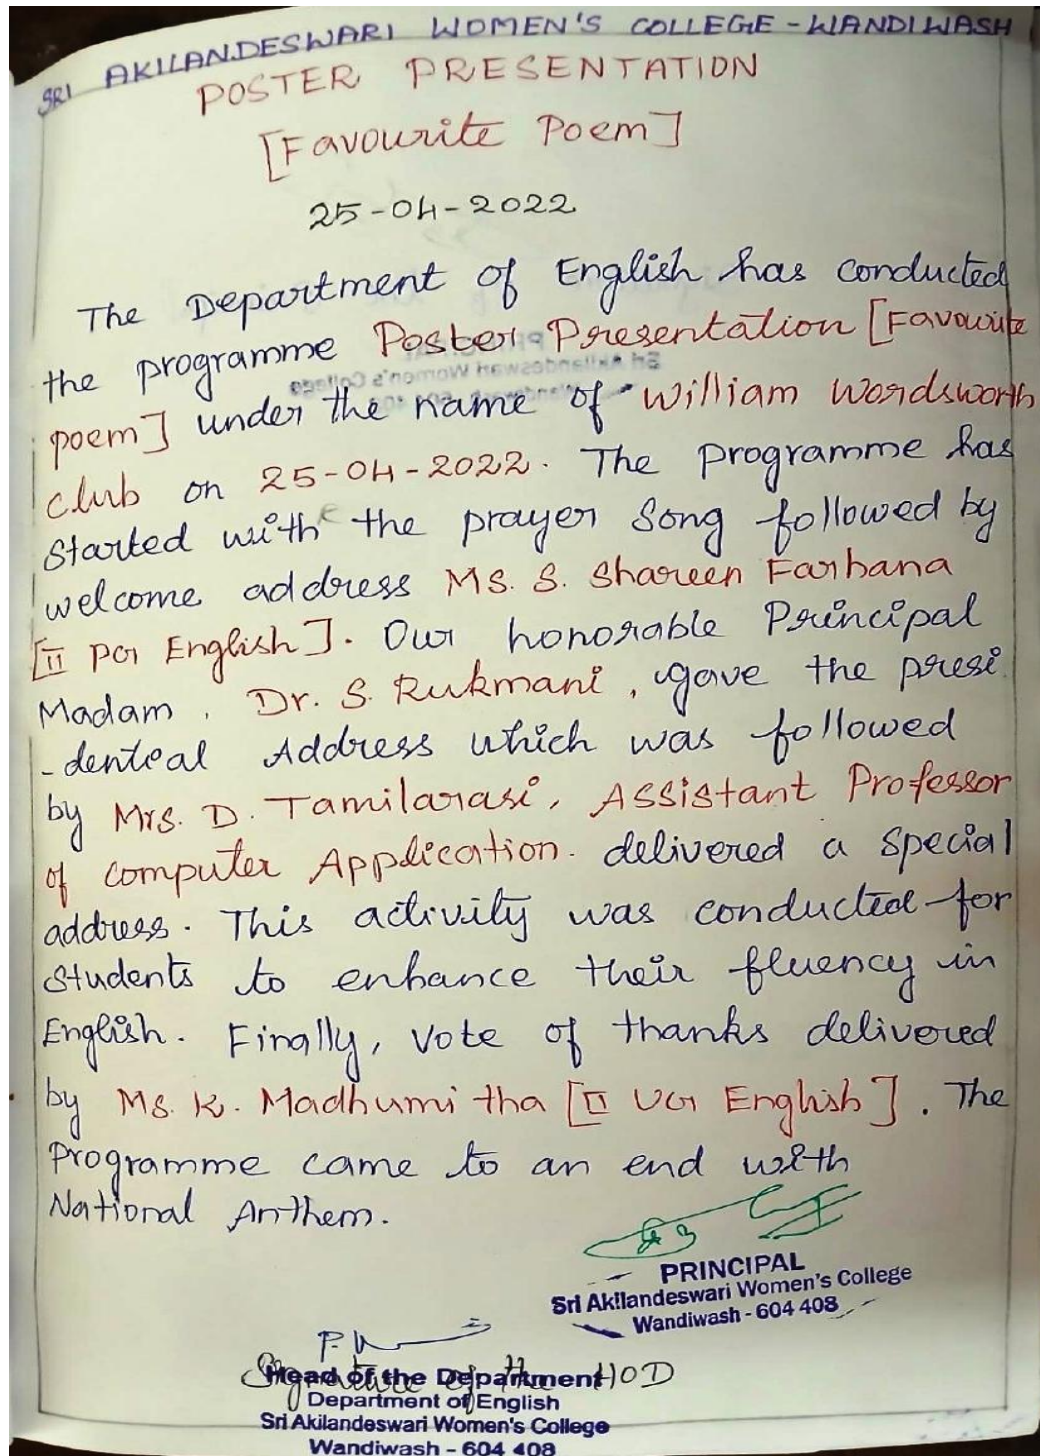 SRI AKILANDESWARI WOMEN'S COLLEGE - WANDIWASH
POSTER PRESENTATION
[Favourite Poem]
25-04-2022
The Department of English has conducted
the programme Poster Presentation [Favourite
poem] under the name of William Wordsworth
club on 25-04-2022. The programme has
started with the prayer song followed by
welcome address Ms. S. Shareen Farhana
[II PG English]. Our honorable Principal
Madam, Dr. S. Rukmani, gave the presi
-dential Address which was followed
by Mrs. D. Tamilarasi, Assistant Professor
of Computer Application. delivered a special
address. This activity was conducted for
students to enhance their fluency in
English. Finally, vote of thanks delivered
by Ms. K. Madhumitha [II UG English]. The
Programme came to an end with
National Anthem.
PRINCIPAL
Sri Akilandeswari Women's College
Wandiwash - 604 408
Signature of the HOD
Head of the Department
Department of English
Sri Akilandeswari Women's College
Wandiwash - 604 408